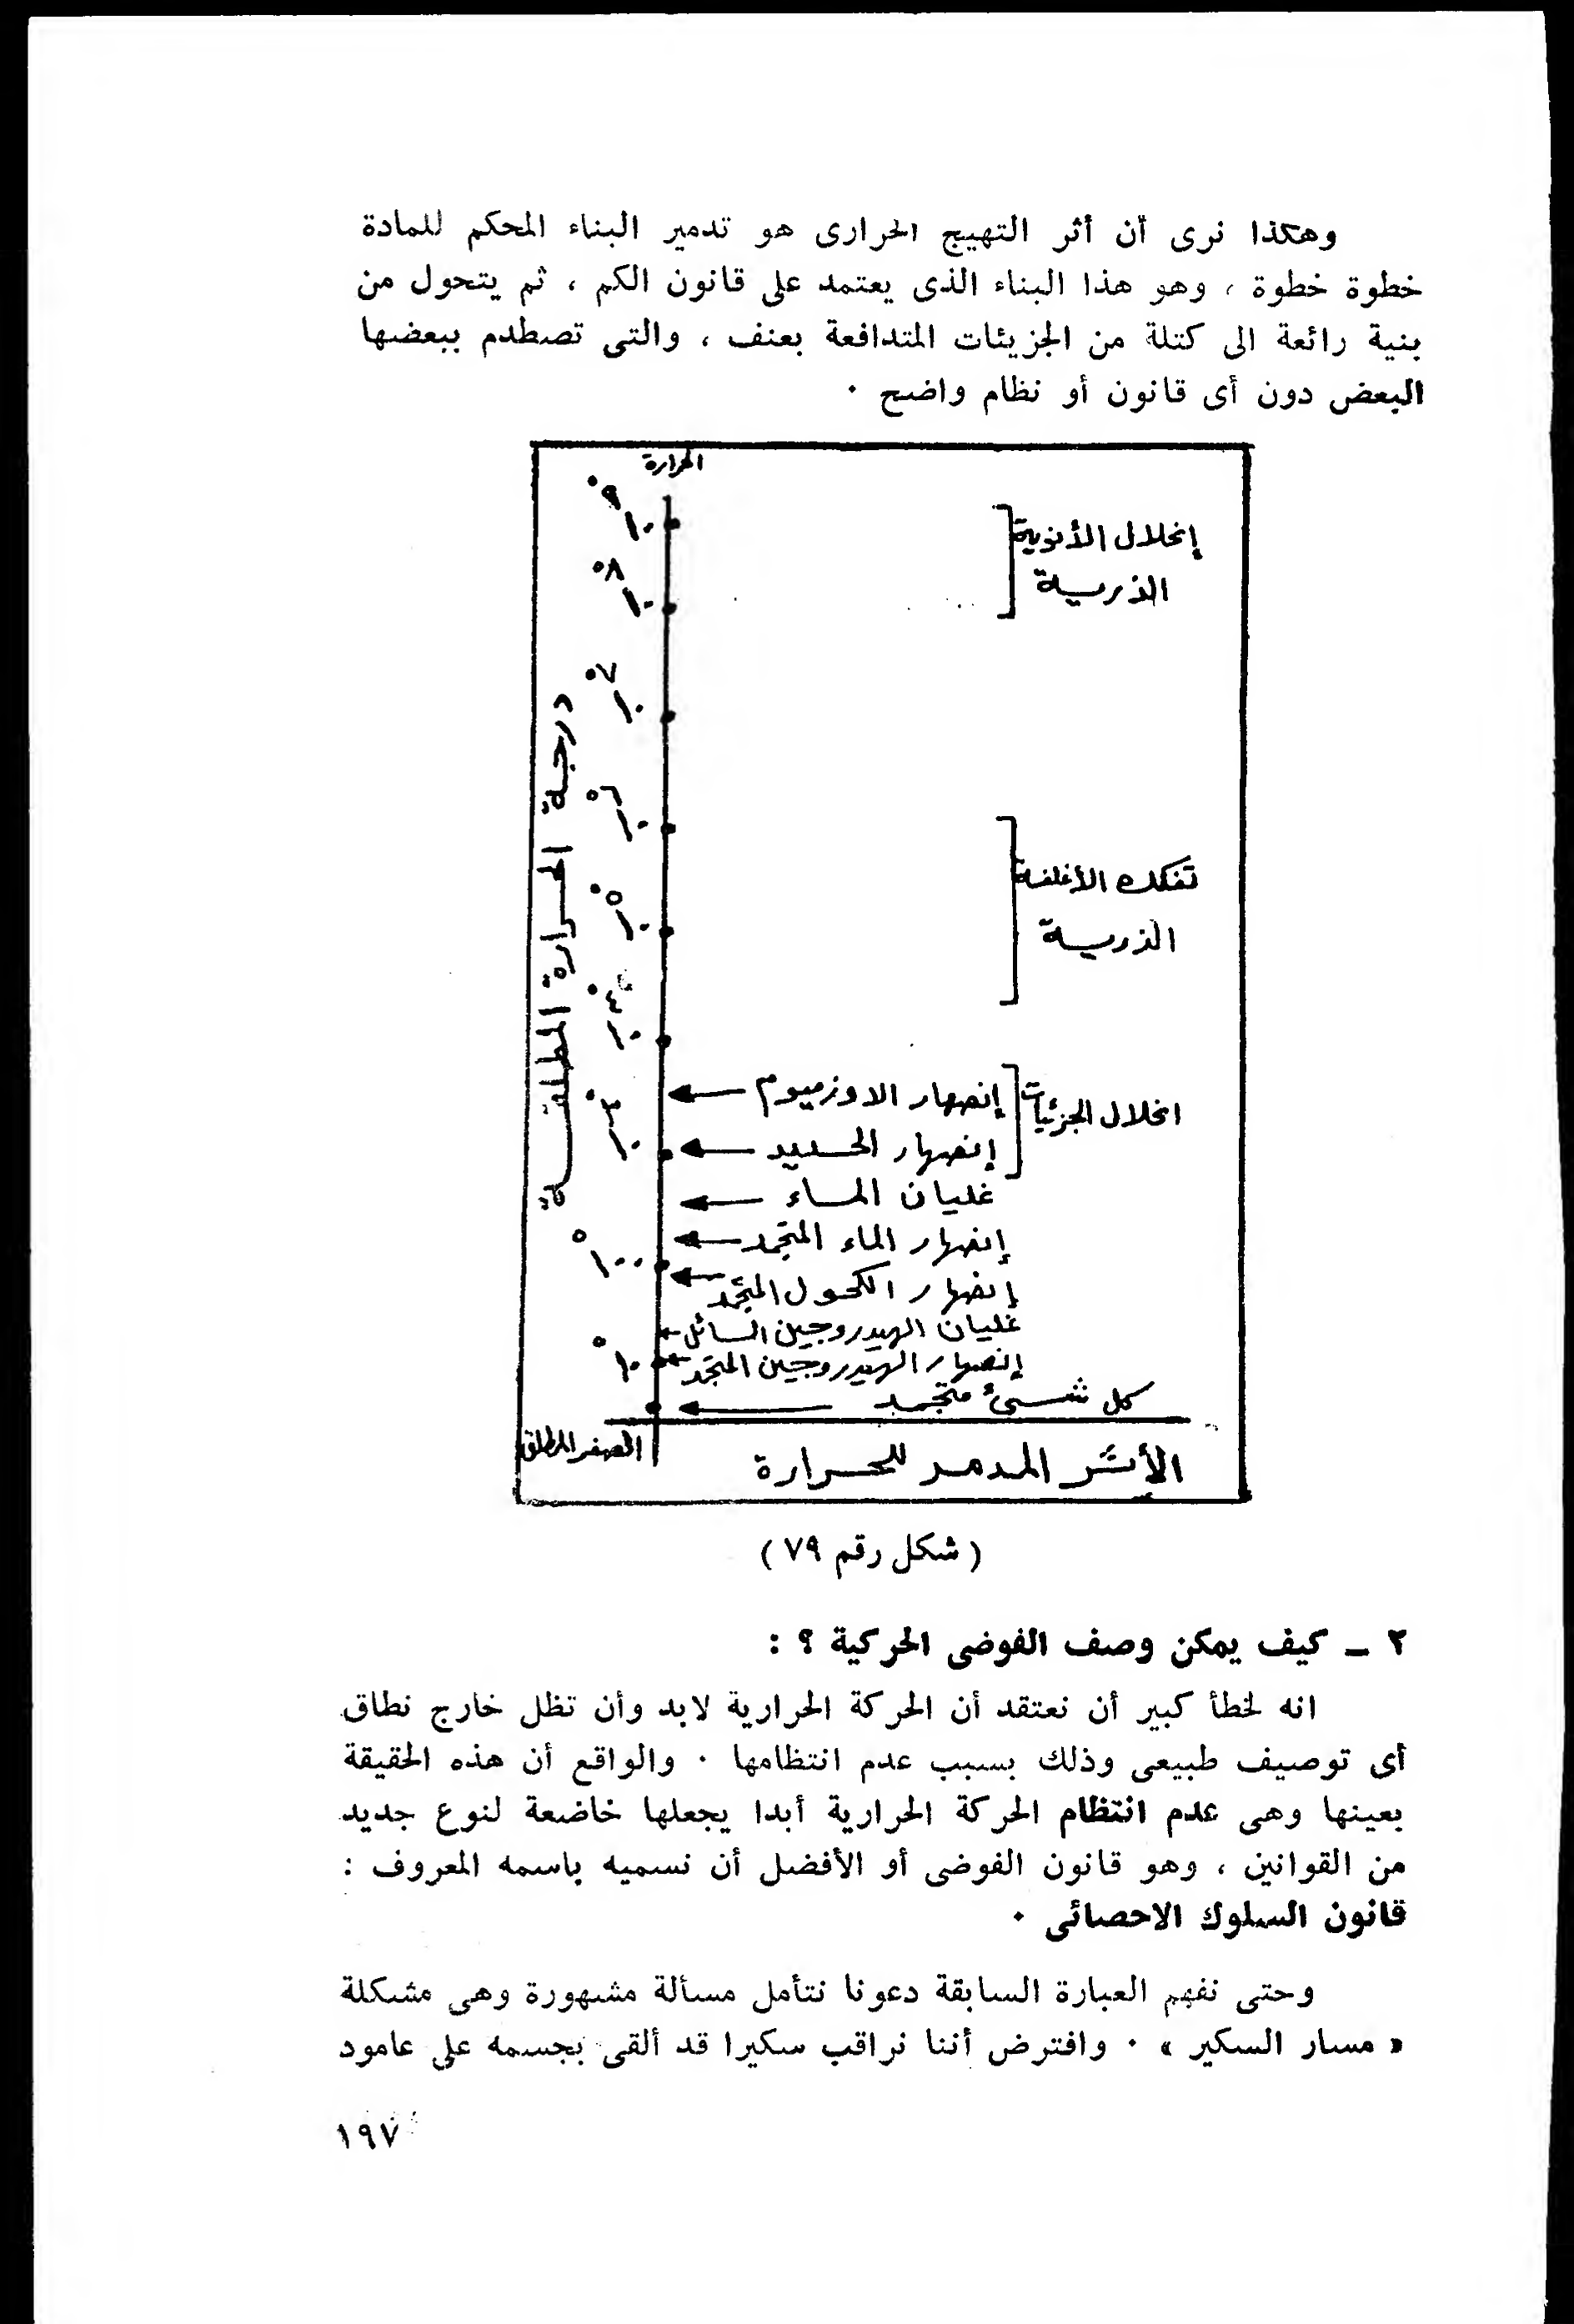 وهكذا نرى أن أثر التهيج الحرارى هو تدمير البناء المحكم للمادة
خطوة خطوة ، وهو هذا البناء الذى يعتمد على قانون الكم ، ثم يتحول من
بنية رائعة الى كتلة من الجزيئات المتدافعة بعنف ، والتى تصطدم ببعضها
البعض دون أى قانون أو نظام واضح ٠
الحرارة
١٠ ٩°
١٠ ٨°
١٠ ٧°
١٠ ٦°
١٠ ٥°
١٠ ٤°
١٠ ٣°
١٠٠°
١٠°
درجة الحرارة المطلقة
إنحلال الأنوية
الذرية
تفكك الأغلفة
الذرية
انحلال الجزئيات
إنصهار الاوزميوم
إنصهار الحديد
غليان الماء
إنصهار الماء المتجمد
إنصهار الكحول المتجمد
غليان الهيدروجين السائل
إنصهار الهيدروجين المتجمد
كل شىء متجمد
الصفر المطلق
الأثر المدمر للحرارة
( شكل رقم ٧٩ )
٢ ــ كيف يمكن وصف الفوضى الحركية ؟ :
انه لخطأ كبير أن نعتقد أن الحركة الحرارية لابد وأن تظل خارج نطاق
أى توصيف طبيعى وذلك بسبب عدم انتظامها ٠ والواقع أن هذه الحقيقة
بعينها وهى عدم انتظام الحركة الحرارية أبدا يجعلها خاضعة لنوع جديد
من القوانين ، وهو قانون الفوضى أو الأفضل أن نسميه باسمه المعروف :
قانون السلوك الاحصائى ٠
وحتى نفهم العبارة السابقة دعونا نتأمل مسألة مشهورة وهى مشكلة
« مسار السكير » ٠ وافترض أننا نراقب سكيرا قد ألقى بجسمه على عامود
١٩٧